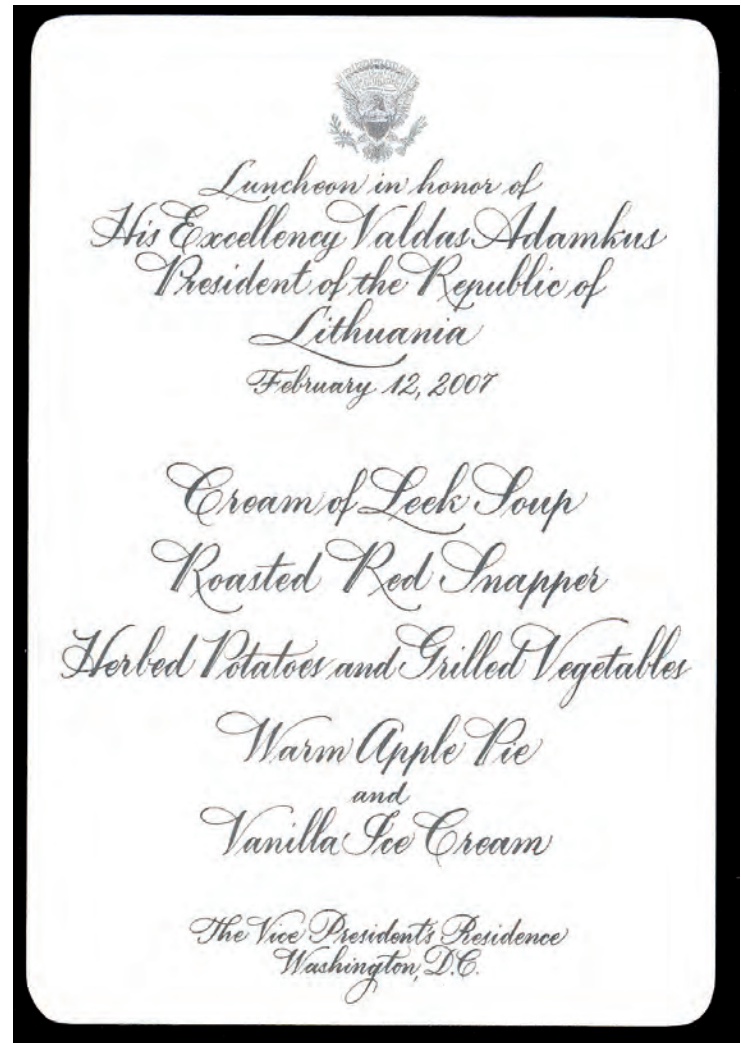 Luncheon in honor of
His Excellency Valdas Adamkus
President of the Republic of
Lithuania
February 12, 2007
Cream of Leek Soup
Roasted Red Snapper
Herbed Potatoes and Grilled Vegetables
Warm Apple Pie
and
Vanilla Ice Cream
The Vice President's Residence
Washington, D.C.